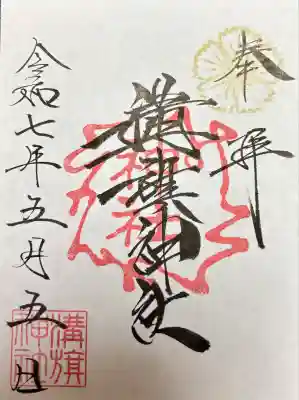 奉拝
溝旗神社
令和七年五月五日
溝旗
神社